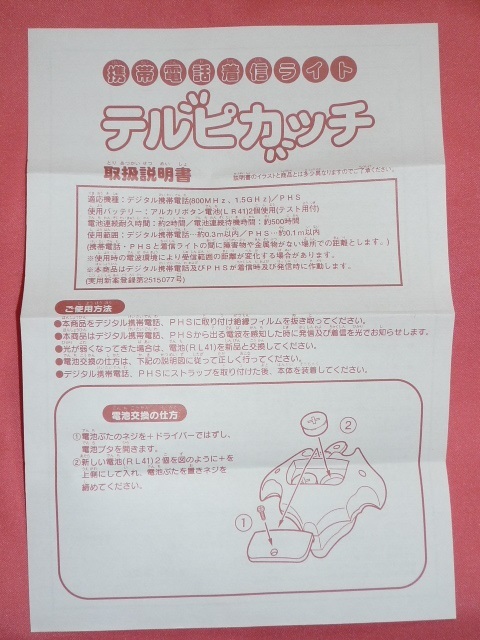 携帯電話着信ライト
テルピカッチ
とりあつかいせつめいしょ
取扱説明書
説明書のイラストと商品とは多少異なりますのでご了承ください。
適応機種：デジタル携帯電話(800MHz，1.5GHz)／PHS
使用バッテリー：アルカリボタン電池(LR41)2個使用(テスト用付)
電池連続耐久時間：約2時間／電池連続待機時間：約500時間
使用範囲：デジタル携帯電話…約0.3m以内／PHS…約0.1m以内
(携帯電話・PHSと着信ライトの間に障害物や金属物がない場所での距離とします。)
※使用時の電波環境により受信範囲の距離が変化する場合があります。
※本商品はデジタル携帯電話及びPHSが着信時及び発信時に作動します。
(実用新案登録第2515077号)
ご使用方法
●本商品をデジタル携帯電話、PHSに取り付け絶縁フィルムを抜き取ってください。
●本商品はデジタル携帯電話、PHSから出る電波を感知した時に発信及び着信を光でお知らせします。
●光が弱くなってきた場合は、電池(RL41)を新品と交換してください。
●電池交換の仕方は、下記の説明図に従って正しく行ってください。
●デジタル携帯電話、PHSにストラップを取り付けた後、本体を装着してください。
電池交換の仕方
①電池ぶたのネジを＋ドライバーではずし、
電池ブタを開きます。
②新しい電池(RL41)2個を図のように＋を
上側にして入れ、電池ぶたを置きネジを
締めてください。
②
①